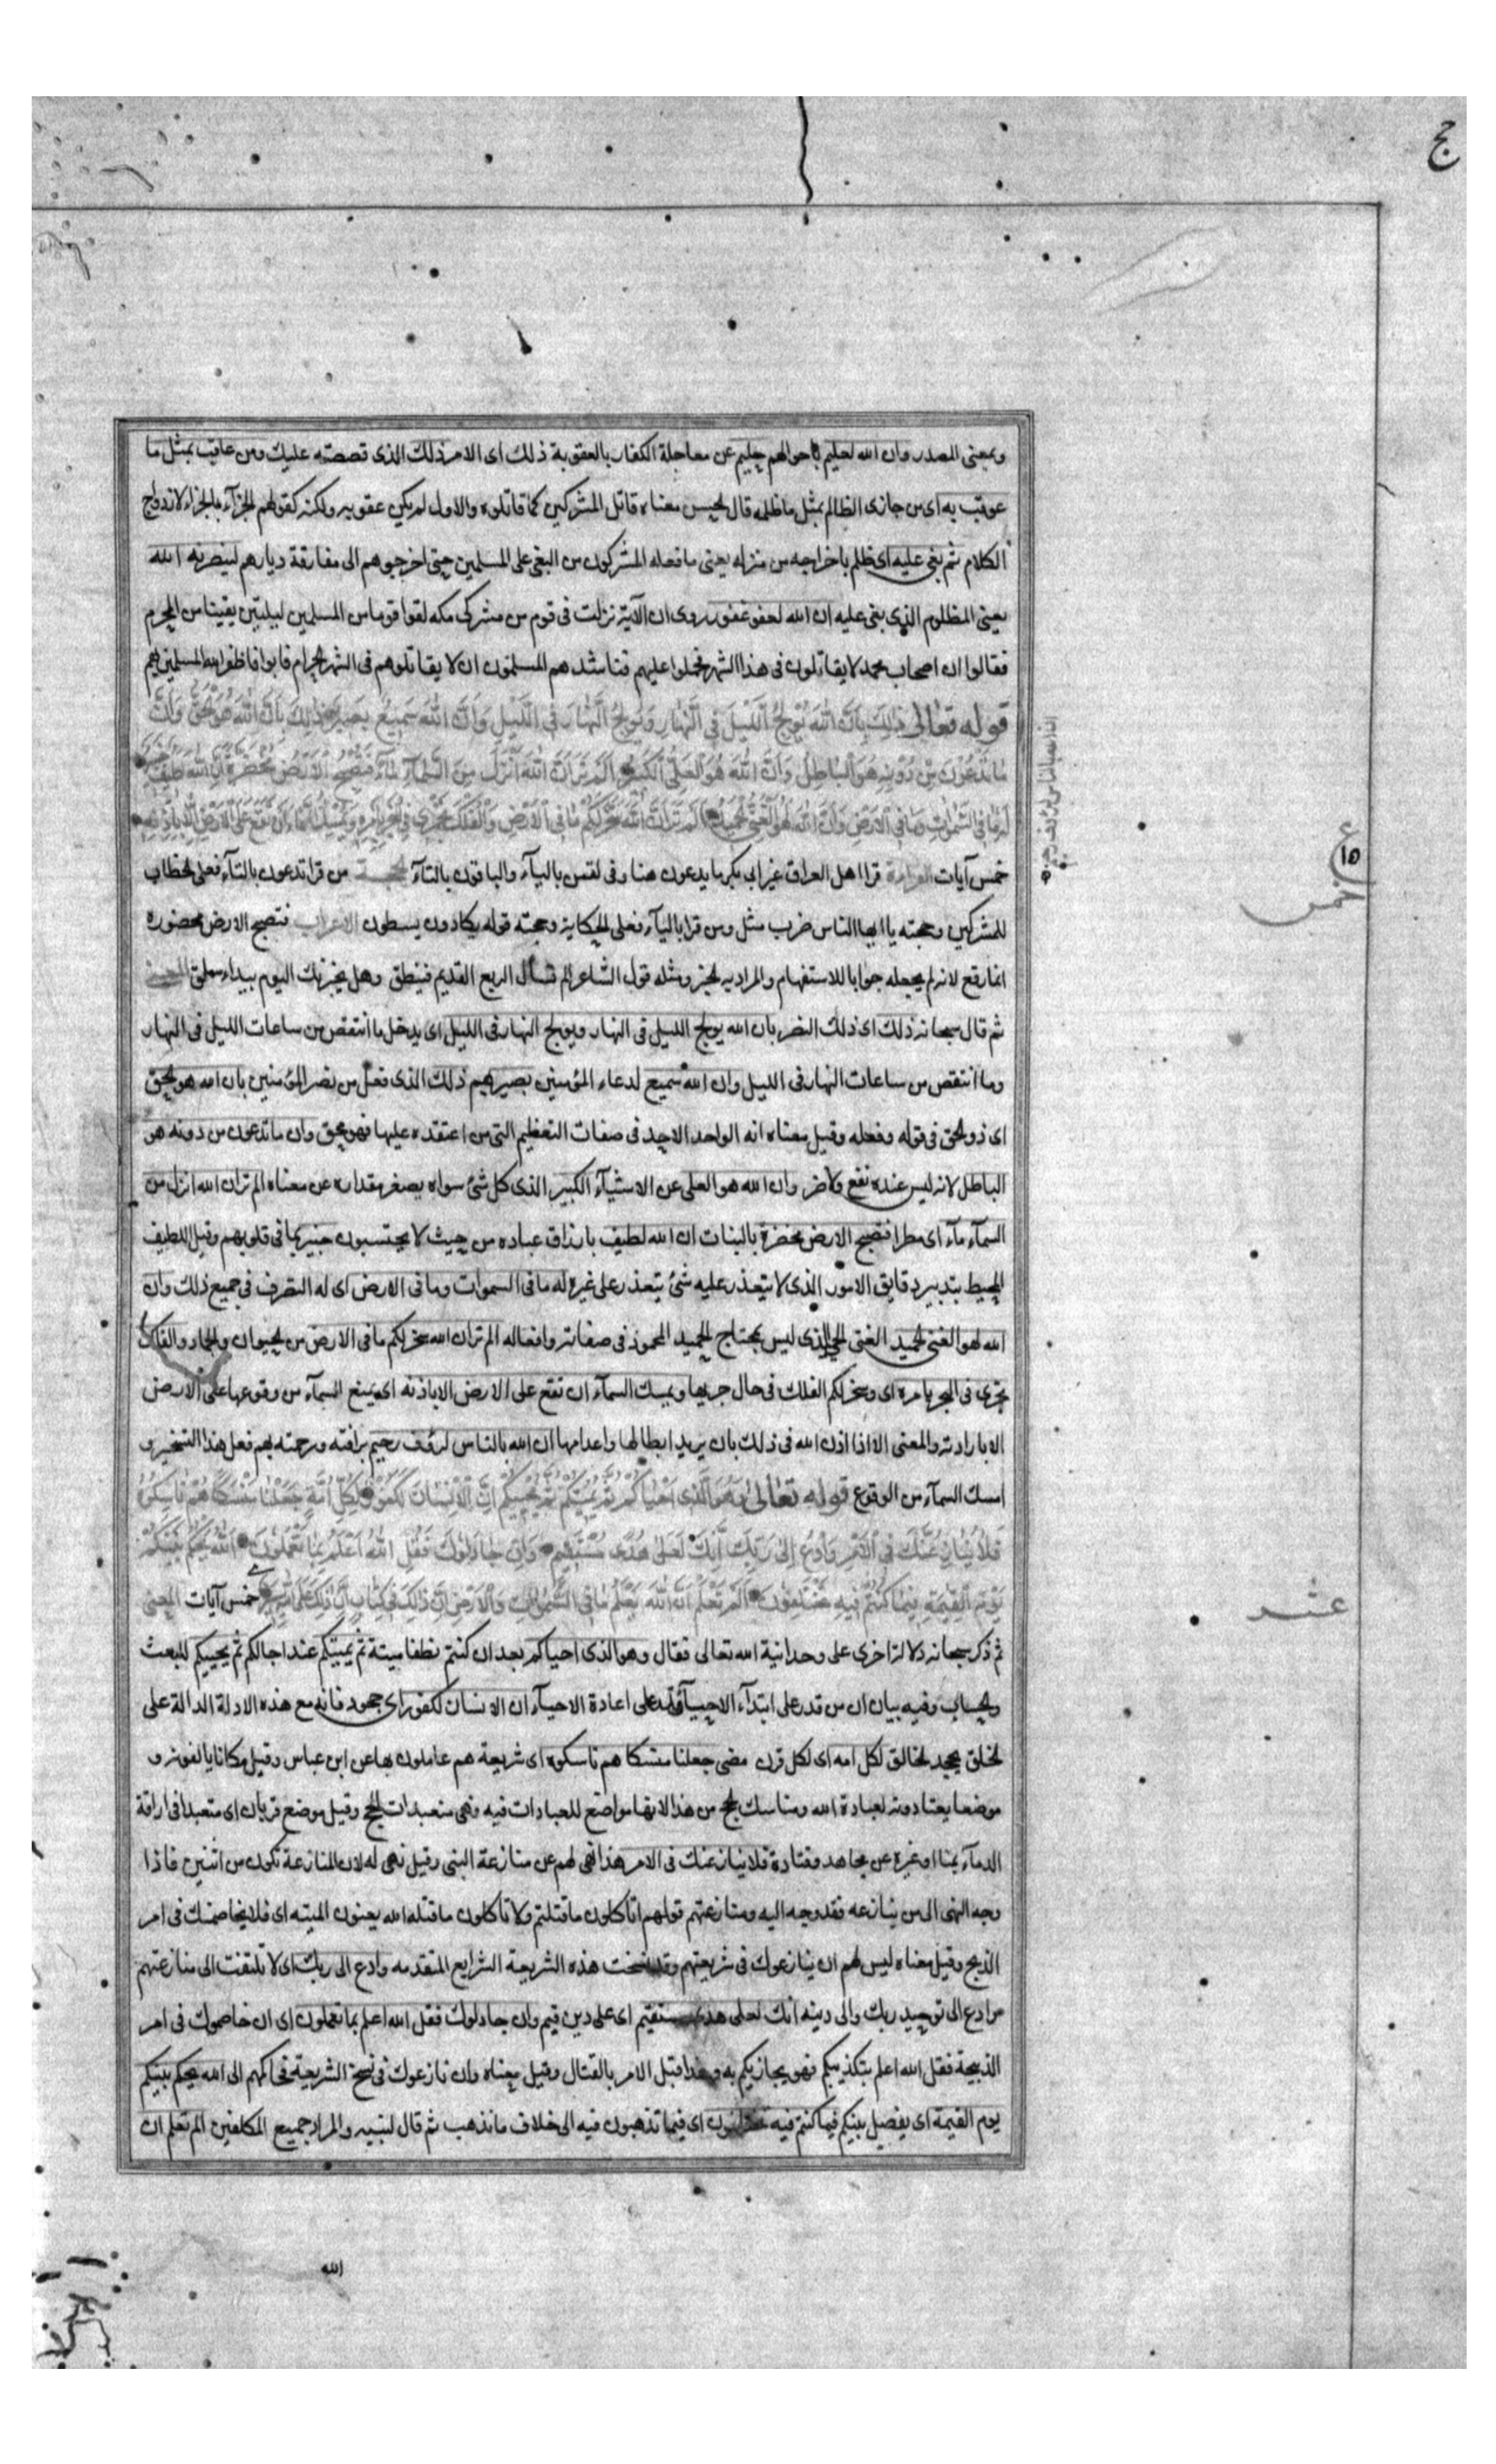 حج
وبمعنى المصدر وان الله لعليم باحوالهم حليم عن معاجلة الكفار بالعقوبة ذلك اى الامر ذلك الذى قصصته عليك ومن عاقب بمثل ما
عوقب به اى من جازى الظالم بمثل ما ظلمه قال الحسن معناه قاتل المشركين كما قاتلوه والاول لم يكن عقوبه ولكنه كقولهم الجزآء بالجزاء لازدواج
الكلام ثم بغى عليه اى ظلم باخراجه من منزله يعنى ما فعله المشركون من البغى على المسلمين حتى اخرجوهم الى مفارقة ديارهم لينصرنه الله
يعنى المظلوم الذى بغى عليه ان الله لعفو غفور روى ان الآية نزلت فى قوم من مشركى مكه لقوا قوما من المسلمين لليلتين بقيتا من المحرم
فقالوا ان اصحاب محمد لا يقاتلون فى هذا الشهر فحملوا عليهم فناشدهم المسلمون ان لا يقاتلوهم فى الشهر الحرام فابوا فاظفر الله المسلمين بهم
قوله تعالى ذلك بان الله يولج الليل فى النهار ويولج النهار فى الليل وان الله سميع بصير ذلك بان الله هو الحق وان
ما تدعون من دونه هو الباطل وان الله هو العلى الكبير الم تر ان الله انزل من السمآء مآء فتصبح الارض مخضرة ان الله لطيف خبير
له ما فى السموات وما فى الارض وان الله لهو الغنى الحميد الم تر ان الله سخر لكم ما فى الارض والفلك تجرى فى البحر بامره ويمسك السمآء ان تقع على الارض الا باذنه
ان الله بالناس لرؤف رحيم
خمس آيات القراءة قرا اهل العراق غير ابى بكر ما يدعون هنا وفى لقمن باليآء والباقون بالتآء الحجة من قرا تدعون بالتآء فعلى الخطاب
للمشركين وحجته يا ايها الناس ضرب مثل ومن قرا باليآء فعلى الحكاية وحجته قوله يكادون يسطون الاعراب فتصبح الارض مخضرة
انما رفع لانه لم يجعله جوابا للاستفهام والمراد به الخبر ومثله قول الشاعر الم تسال الربع القديم فينطق وهل يخبرنك اليوم بيداء سملق المعنى
ثم قال سبحانه ذلك اى ذلك النصر بان الله يولج الليل فى النهار ويولج النهار فى الليل اى يدخل ما انتقص من ساعات الليل فى النهار
وما انتقص من ساعات النهار فى الليل وان الله سميع لدعاء المؤمنين بصير بهم ذلك الذى فعل من نصر المؤمنين بان الله هو الحق
اى ذو الحق فى قوله وفعله وقيل معناه انه الواحد الاحد فى صفات التعظيم التى من اعتقده عليها فهو محق وان ما تدعون من دونه هو
الباطل لانه ليس عنده نفع ولا ضر وان الله هو العلى عن الاشيآء الكبير الذى كل شئ سواه يصغر مقداره عن معناه الم تر ان الله انزل من
السمآء مآء اى مطرا فتصبح الارض مخضرة بالنبات ان الله لطيف بارزاق عباده من حيث لا يحتسبون خبير بما فى قلوبهم وقيل اللطيف
المحيط بتدبير دقايق الامور الذى لا يتعذر عليه شئ يتعذر على غيره له ما فى السموات وما فى الارض اى له التصرف فى جميع ذلك وان
الله لهو الغنى الحميد الغنى الحى الذى ليس بمحتاج الحميد المحمود فى صفاته وافعاله الم تر ان الله سخر لكم ما فى الارض من الحيوان والجماد والفلك
تجرى فى البحر بامره اى وسخر لكم الفلك فى حال جريها ويمسك السمآء ان تقع على الارض الا باذنه اى يمنع السمآء من وقوعها على الارض
الا بارادته والمعنى الا اذا اذن الله فى ذلك بان يريد ابطالها واعدامها ان الله بالناس لرؤف رحيم برافته ورحمته بهم فعل هذا التسخير و
امسك السمآء من الوقوع قوله تعالى وهو الذى احياكم ثم يميتكم ثم يحييكم ان الانسان لكفور لكل امة جعلنا منسكا هم ناسكوه
فلا ينازعنك فى الامر وادع الى ربك انك لعلى هدى مستقيم وان جادلوك فقل الله اعلم بما تعملون الله يحكم بينكم
يوم القيمة فيما كنتم فيه تختلفون الم تعلم ان الله يعلم ما فى السموات والارض ان ذلك فى كتاب ان ذلك على الله يسير خمس آيات المعنى
ثم ذكر سبحانه دلالة اخرى على وحدانية الله تعالى فقال وهو الذى احياكم بعد ان كنتم نطفا ميتة ثم يميتكم عند اجالكم ثم يحييكم للبعث
والحساب وفيه بيان ان من قدر على ابتدآء الاحيآء قدر على اعادة الاحيآء ان الانسان لكفور اى جحود فانه مع هذه الادلة الدالة على
الخلق يجحد الخالق لكل امه اى لكل قرن مضى جعلنا منسكا هم ناسكوه اى شريعة هم عاملون بها عن ابن عباس وقيل مكانا يالفونه و
موضعا يعتادونه لعبادة الله ومناسك الحج من هذا لانها مواضع للعبادات فيه وهى متعبدات الحج وقيل موضع قربان اى متعبدا فى اراقة
الدمآء بمنا او غيره عن مجاهد وقتادة فلا ينازعنك فى الامر هذا نهى لهم عن منازعة النبى وقيل نهى له لان المنازعة تكون من اثنين فاذا
وجه النهى الى من ينازعه فقد وجه اليه ومنازعتهم قولهم اتاكلون ما قتلتم ولا تاكلون ما قتله الله يعنون الميته اى فلا يخاصمنك فى امر
الذبح وقيل معناه ليس لهم ان ينازعوك فى شريعتهم وقد نسخت هذه الشريعة الشرايع المتقدمه وادع الى ربك اى لا تلتفت الى منازعتهم
وادع الى توحيد ربك والى دينه انك لعلى هدى مستقيم اى على دين قيم وان جادلوك فقل الله اعلم بما تعملون اى ان خاصموك فى امر
الذبيحة فقل الله اعلم بتكذيبكم فهو يجازيكم به وهذا قبل الامر بالقتال وقيل معناه وان نازعوك فى نسخ الشريعة فحاكمهم الى الله يحكم بينكم
يوم القيمة اى يفصل بينكم فيما كنتم فيه تختلفون اى فيما تذهبون فيه الى خلاف ما نذهب ثم قال لنبيه والمراد جميع المكلفين الم تعلم ان
ع
١٥
خمس
عشر
الله